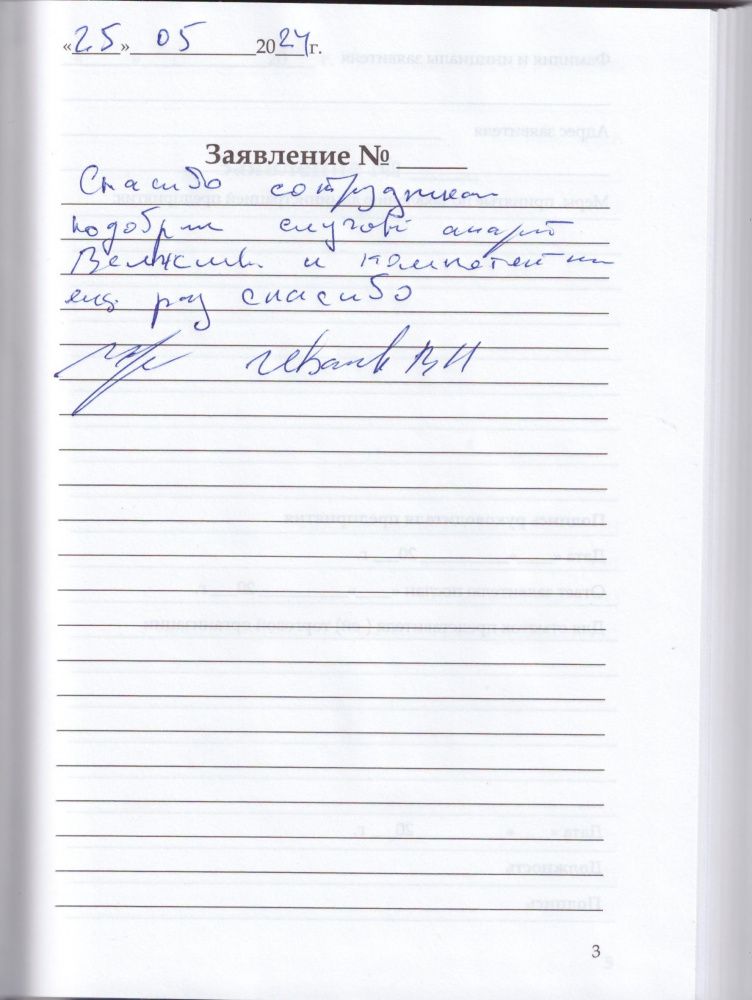 «25» 05 2024 г.
Заявление № ____
Спасибо сотрудникам
подобрали слуховой аппарат
Вежливы и компетентны
еще раз спасибо
3